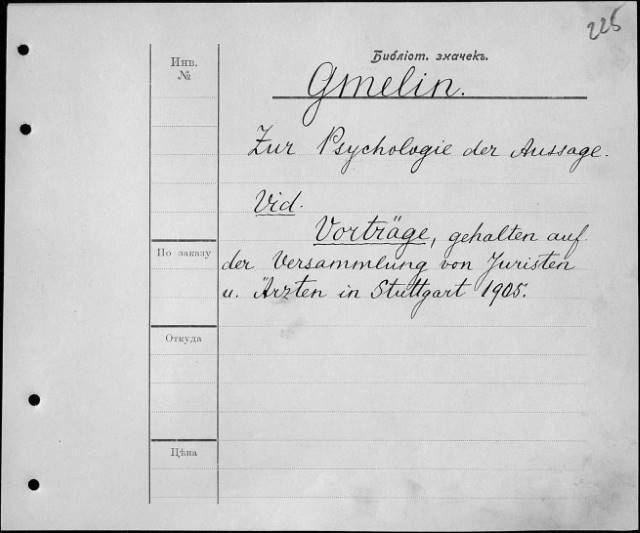 225
Библіот. значекъ.
Инв.
№
Gmelin.
Zur Psychologie der Aussage.
Vid.
Vorträge, gehalten auf
По заказу
der Versammlung von Juristen
u. Ärzten in Stuttgart 1905.
Откуда
Цѣна